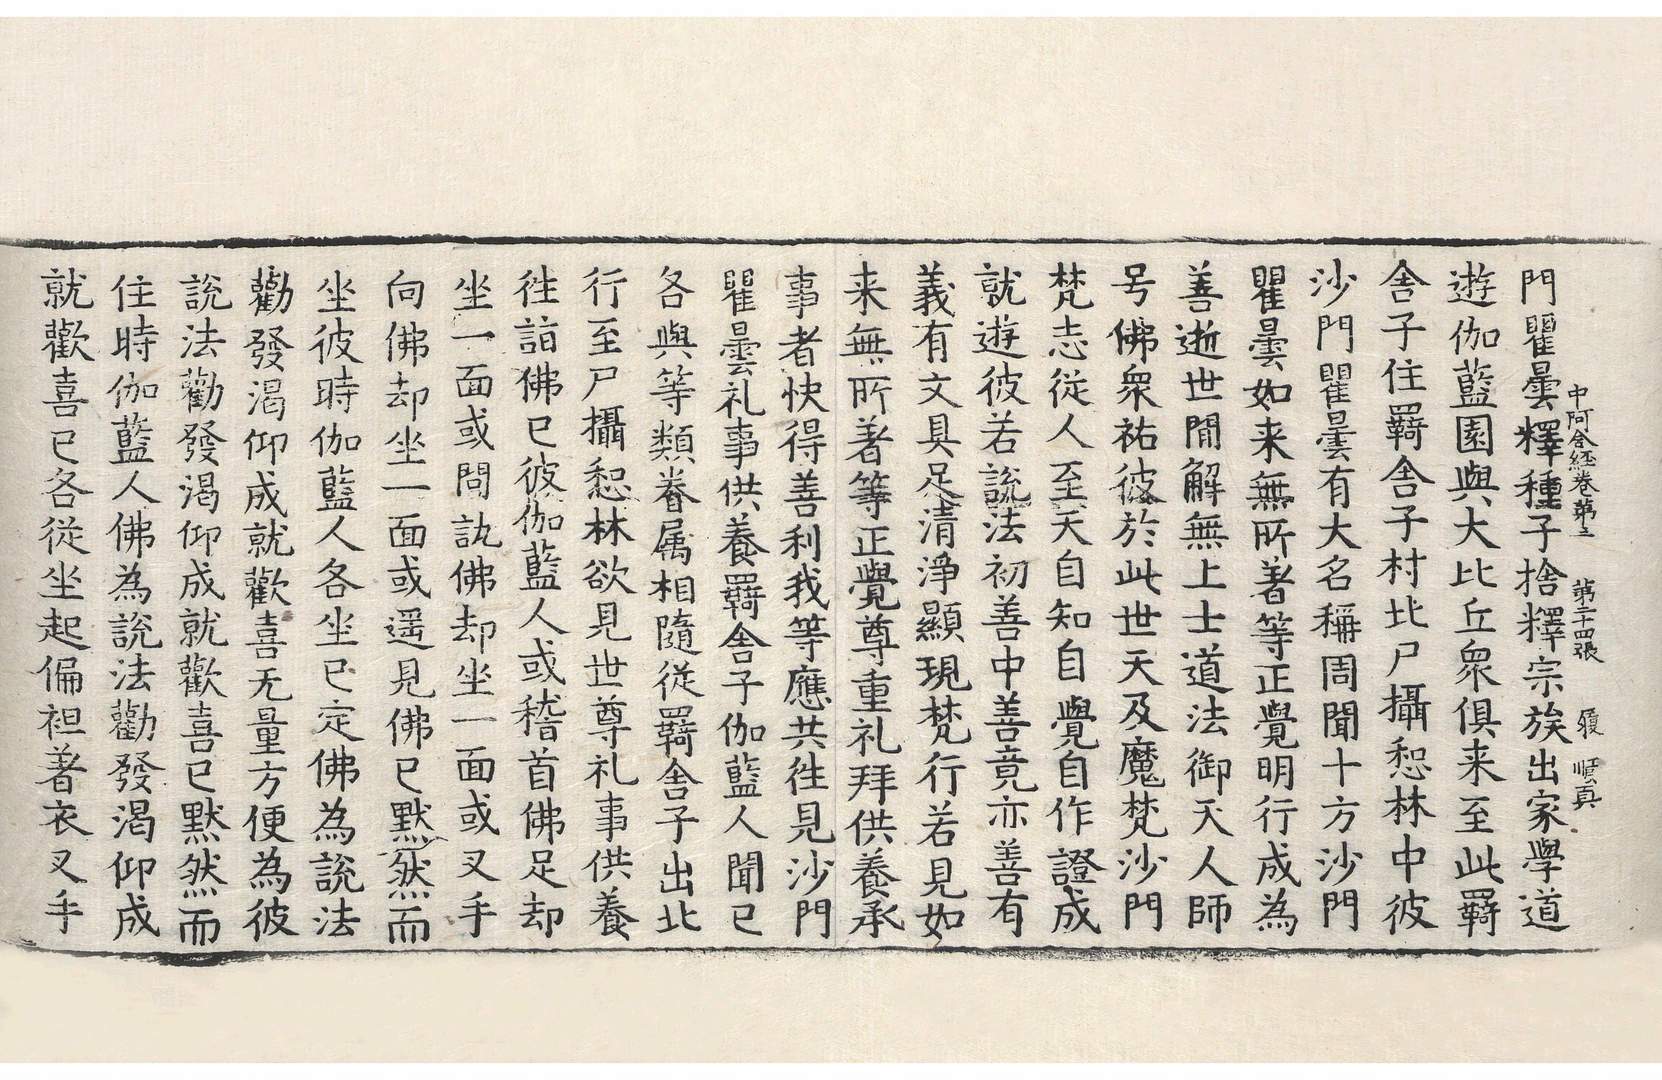 中阿含経卷第三 第二十四張 履 順真
門瞿曇釋種子捨釋宗族出家學道
遊伽藍園與大比丘衆俱来至此羇
舍子住羇舍子村北尸攝惒林中彼
沙門瞿曇有大名稱周聞十方沙門
瞿曇如来無所著等正覺明行成為
善逝世間解無上士道法御天人師
号佛衆祐彼於此世天及魔梵沙門
梵志従人至天自知自覺自作證成
就遊彼若說法初善中善竟亦善有
義有文具足清淨顯現梵行若見如
来無所著等正覺尊重礼拜供養承
事者快得善利我等應共往見沙門
瞿曇礼事供養羇舍子伽藍人聞已
各與等類眷属相隨從羇舍子出北
行至尸攝惒林欲見世尊礼事供養
往詣佛已彼伽藍人或稽首佛足却
坐一面或問訊佛却坐一面或叉手
向佛却坐一面或遥見佛已黙然而
坐彼時伽藍人各坐已定佛為說法
勸發渴仰成就歡喜无量方便為彼
說法勸發渴仰成就歡喜已黙然而
住時伽藍人佛為說法勸發渴仰成
就歡喜已各從坐起偏袒著衣叉手